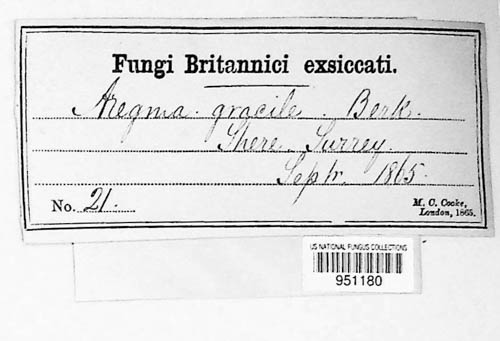 Fungi Britannici exsiccati.
Aregma gracile. Berk.
Shere. Surrey.
Septr. 1865.
No. 21.
M. C. Cooke,
London, 1865.
US NATIONAL FUNGUS COLLECTIONS
951180